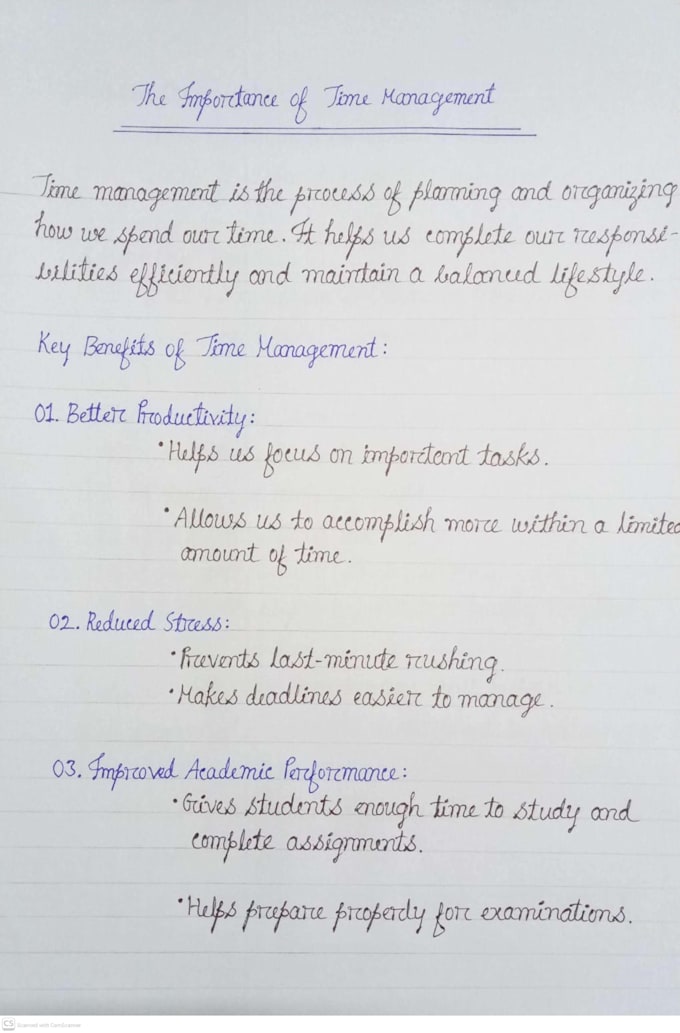 The Importance of Time Management
Time management is the process of planning and organizing
how we spend our time. It helps us complete our responsi-
bilities efficiently and maintain a balanced lifestyle.
Key Benefits of Time Management:
01. Better Productivity:
• Helps us focus on important tasks.
• Allows us to accomplish more within a limited
amount of time.
02. Reduced Stress:
• Prevents last-minute rushing.
• Makes deadlines easier to manage.
03. Improved Academic Performance:
• Gives students enough time to study and
complete assignments.
• Helps prepare properly for examinations.
CS Scanned with CamScanner